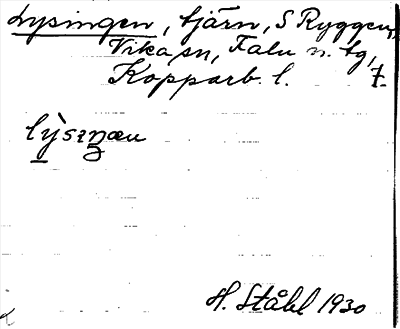 Lysingen, tjärn, S Ryggen,
Vika sn, Falu n. tg,
Kopparb. l. 7.
H. Ståhl 1930